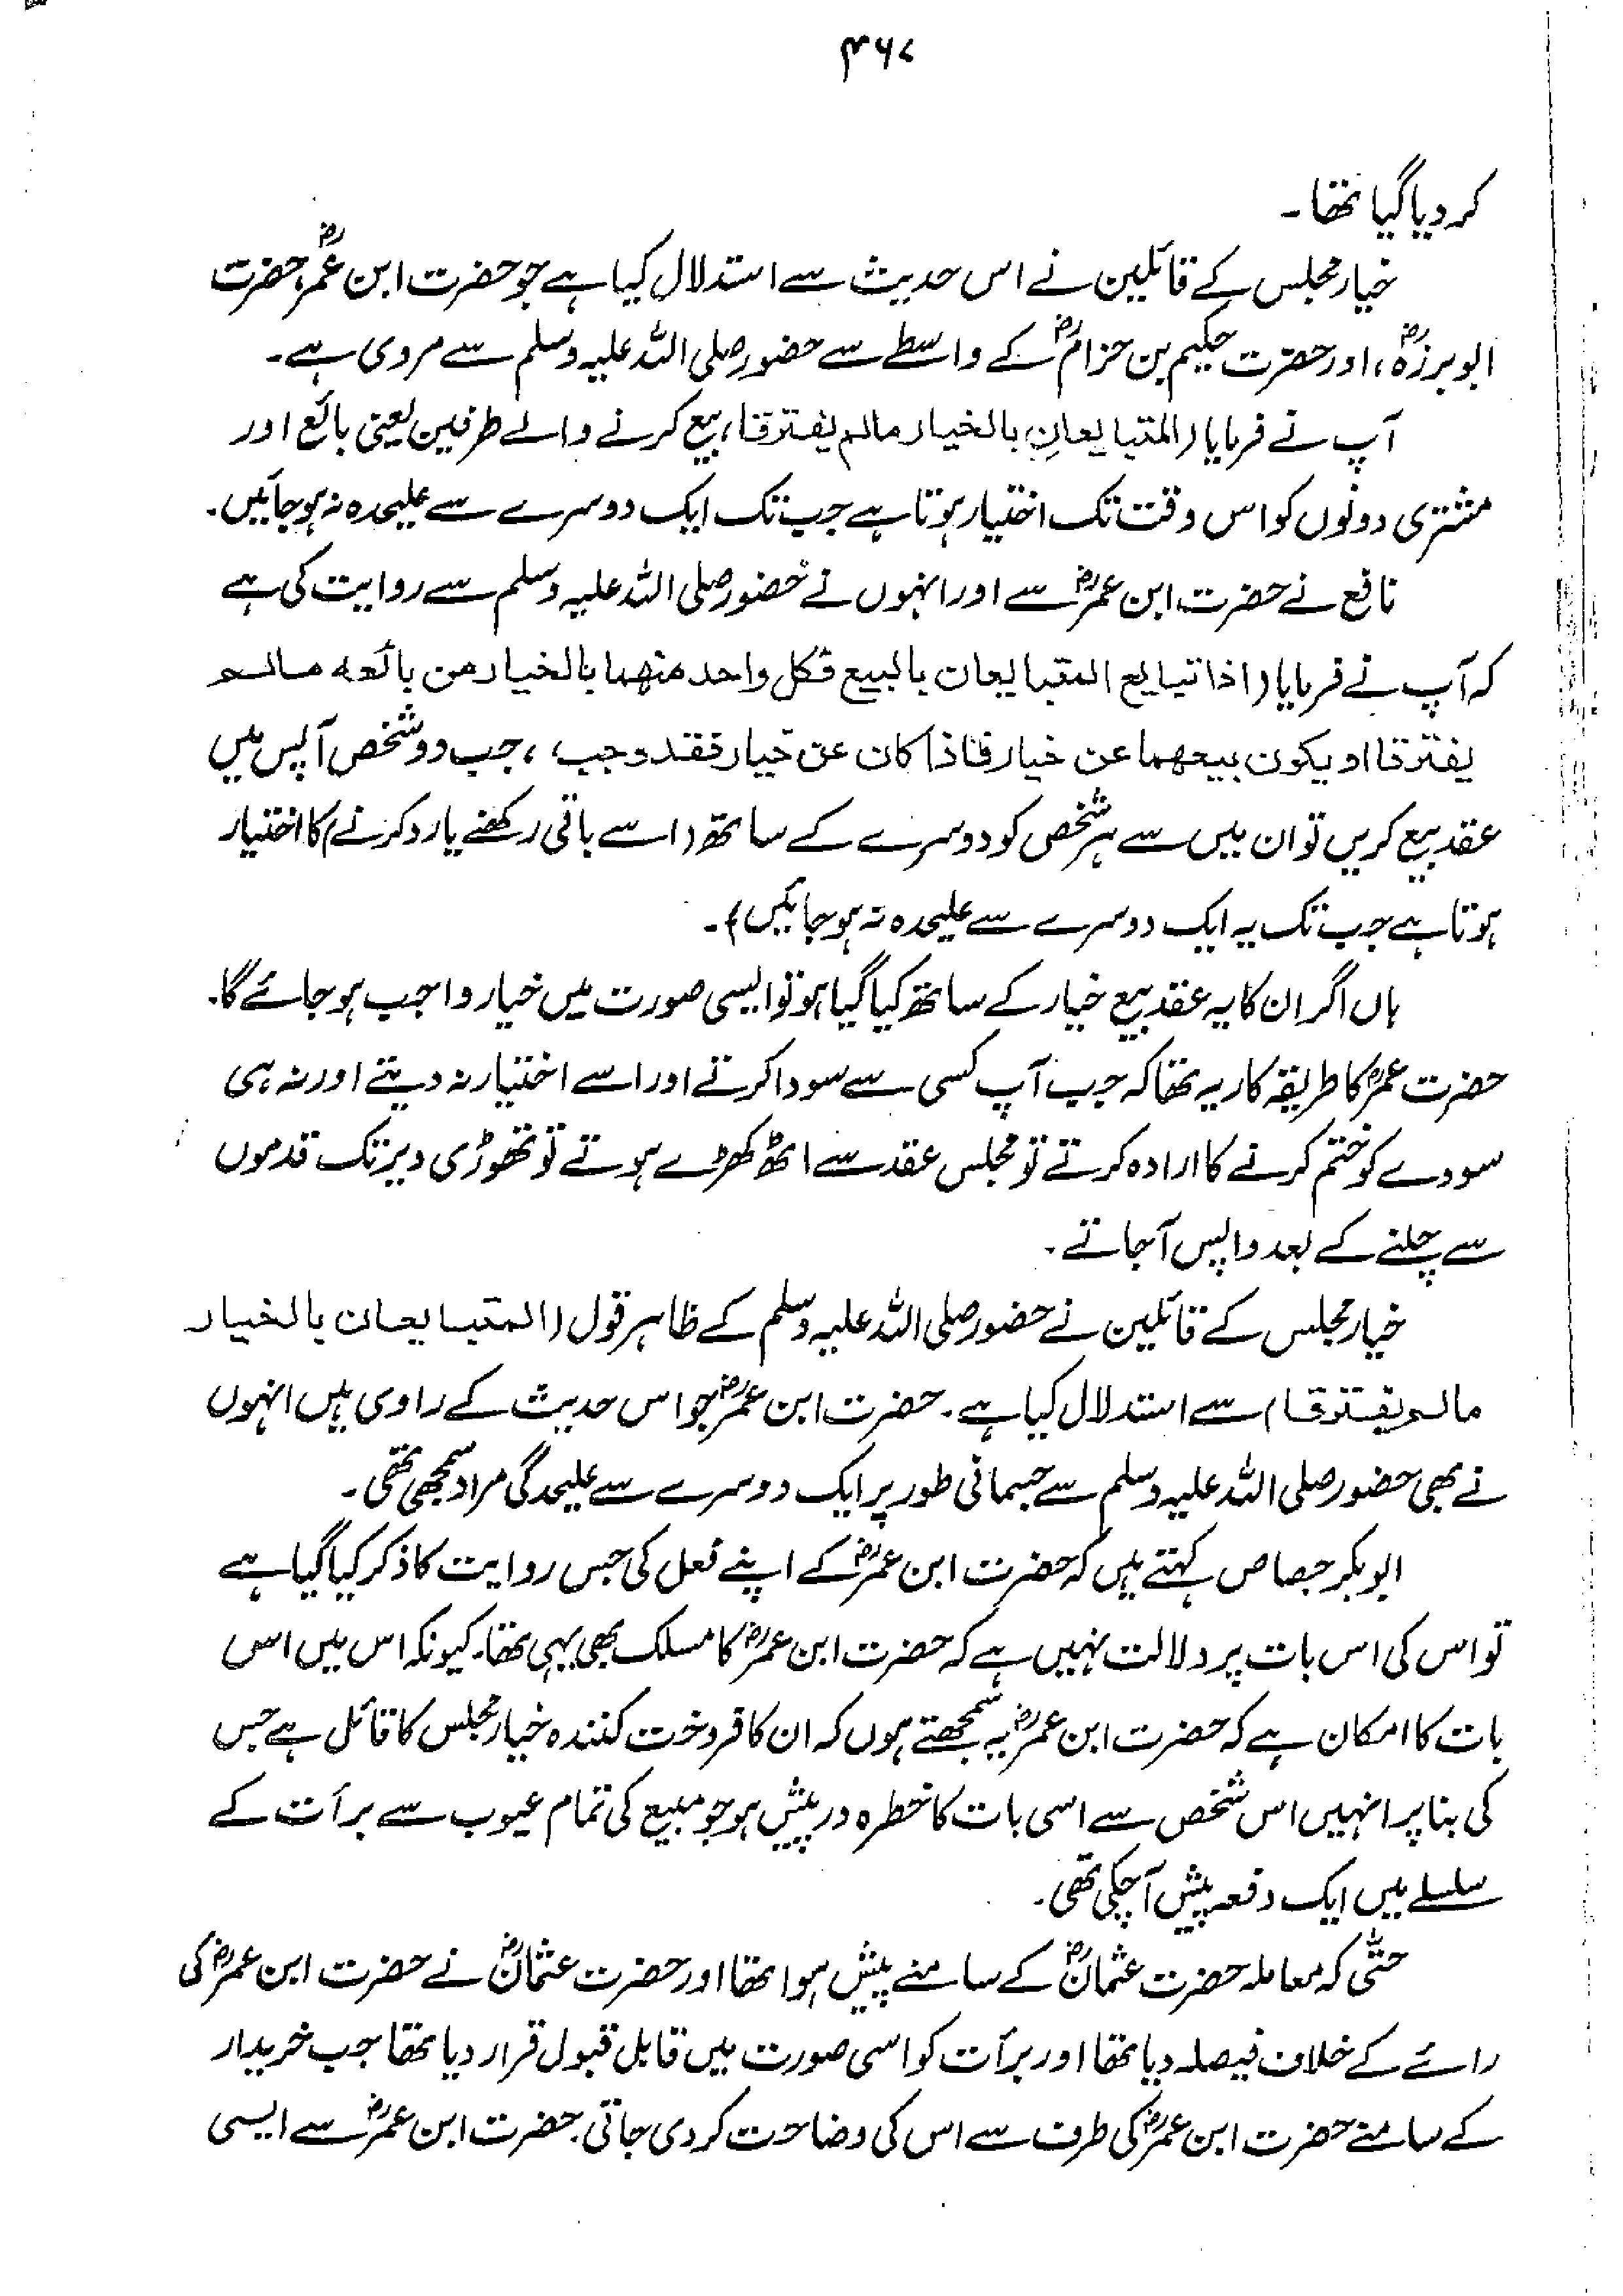 ۴۶۷
کر دیا گیا تھا۔
خیار مجلس کے قائلین نے اس حدیث سے استدلال کیا ہے جو حضرت ابن عمرؓ، حضرت
ابوبرزہؓ، اور حضرت حکیم بن حزامؓ کے واسطے سے حضور صلی اللہ علیہ وسلم سے مروی ہے۔
آپ نے فرمایا (المتبایعانِ بالخیار مالم یفترقا، بیع کرنے والے طرفین یعنی بائع اور
مشتری دونوں کو اس وقت تک اختیار ہوتا ہے جب تک ایک دوسرے سے علیحدہ نہ ہو جائیں۔
نافع نے حضرت ابن عمرؓ سے اور انہوں نے حضور صلی اللہ علیہ وسلم سے روایت کی ہے
کہ آپ نے فرمایا (اذا تبایع المتبایعان بالبیع فکل واحد منھما بالخیار من بائعہ مالم
یفترقا او یکون بیعھما عن خیار فاذا کان عن خیار فقد وجب، جب دو شخص آپس میں
عقد بیع کریں تو ان میں سے ہر شخص کو دوسرے کے ساتھ (اسے باقی رکھنے یا رد کرنے) کا اختیار
ہوتا ہے جب تک یہ ایک دوسرے سے علیحدہ نہ ہو جائیں)۔
ہاں اگر ان کا یہ عقد بیع خیار کے ساتھ کیا گیا ہو تو ایسی صورت میں خیار واجب ہو جائے گا۔
حضرت عمرؓ کا طریقہ کار یہ تھا کہ جب آپ کسی سے سودا کرتے اور اسے اختیار نہ دیتے اور نہ ہی
سودے کو ختم کرنے کا ارادہ کرتے تو مجلس عقد سے اٹھ کھڑے ہوتے تو تھوڑی دیر تک قدموں
سے چلنے کے بعد واپس آجاتے۔
خیار مجلس کے قائلین نے حضور صلی اللہ علیہ وسلم کے ظاہر قول (المتبایعان بالخیار
مالم یفترقا) سے استدلال کیا ہے۔ حضرت ابن عمرؓ جو اس حدیث کے راوی ہیں انہوں
نے بھی حضور صلی اللہ علیہ وسلم سے جسمانی طور پر ایک دوسرے سے علیحدگی مراد سمجھی تھی۔
ابوبکر جصاص کہتے ہیں کہ حضرت ابن عمرؓ کے اپنے فعل کی جس روایت کا ذکر کیا گیا ہے
تو اس کی اس بات پر دلالت نہیں ہے کہ حضرت ابن عمرؓ کا مسلک بھی یہی تھا۔ کیونکہ اس میں اس
بات کا امکان ہے کہ حضرت ابن عمرؓ یہ سمجھتے ہوں کہ ان کا فروخت کنندہ خیار مجلس کا قائل ہے جس
کی بنا پر انہیں اس شخص سے اسی بات کا خطرہ درپیش ہو جو مبیع کی تمام عیوب سے برأت کے
سلسلے میں ایک دفعہ پیش آچکی تھی۔
حتّٰی کہ معاملہ حضرت عثمانؓ کے سامنے پیش ہوا تھا اور حضرت عثمانؓ نے حضرت ابن عمرؓ کی
رائے کے خلاف فیصلہ دیا تھا اور برأت کو اسی صورت میں قابل قبول قرار دیا تھا جب خریدار
کے سامنے حضرت ابن عمرؓ کی طرف سے اس کی وضاحت کر دی جاتی۔ حضرت ابن عمرؓ سے ایسی